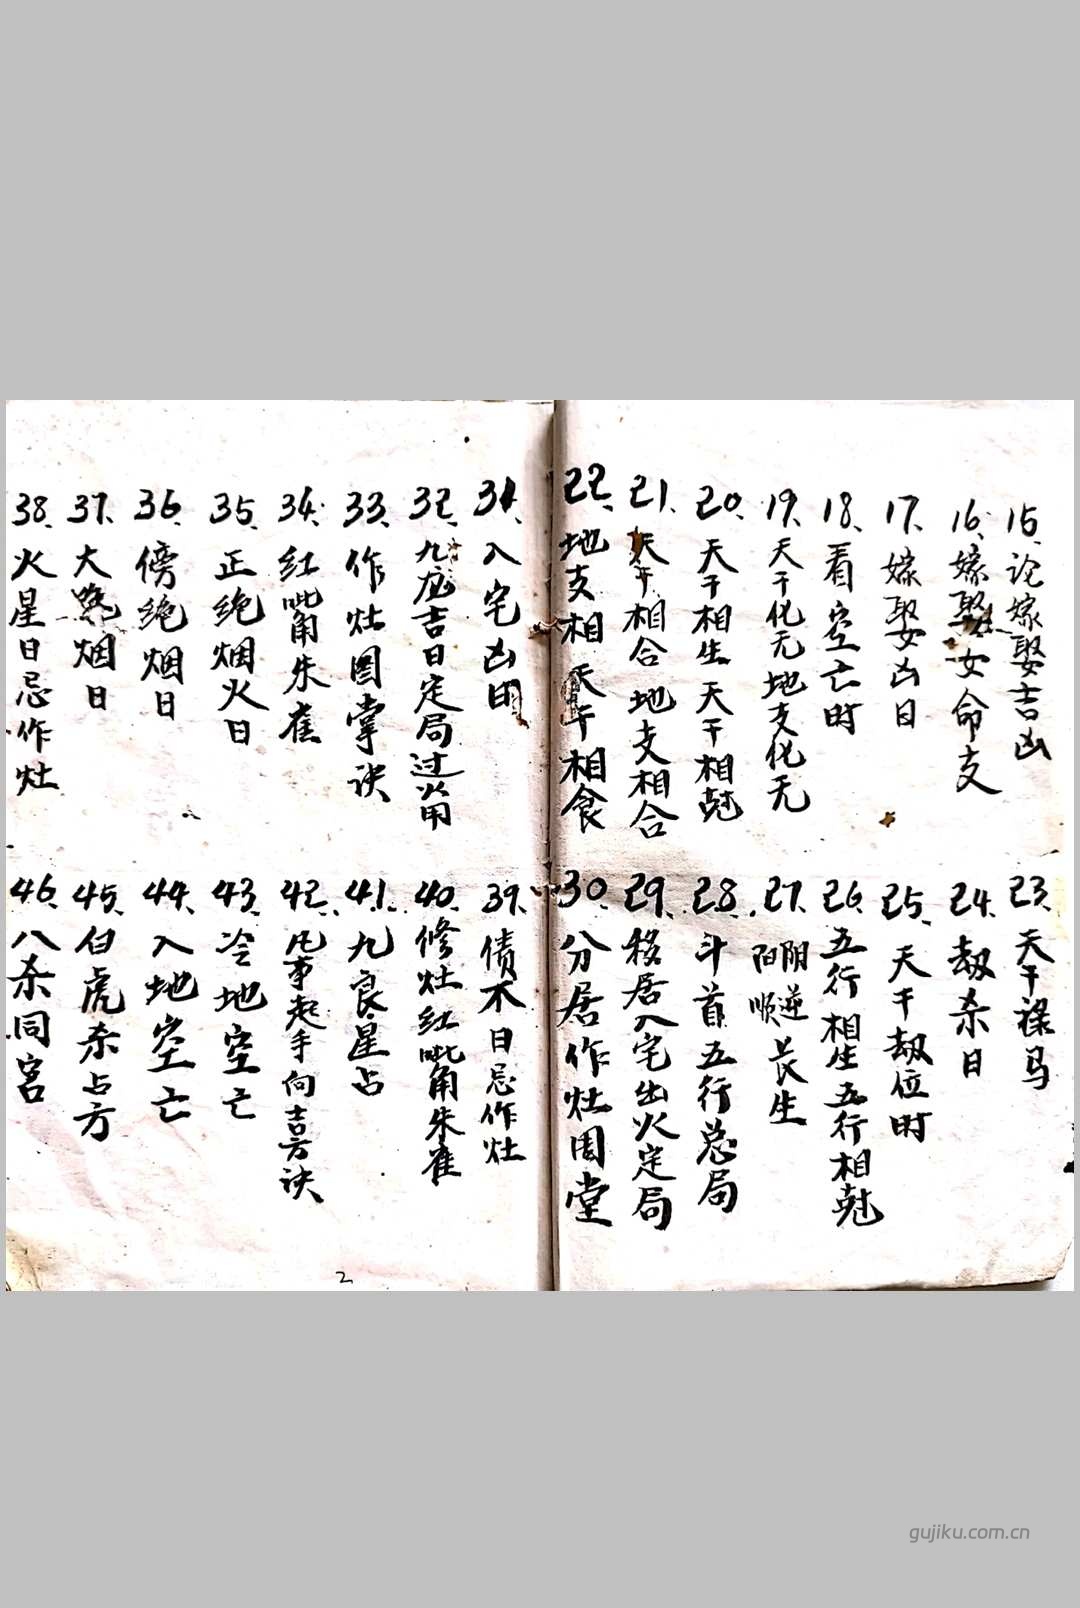 15、论嫁娶吉凶
16、嫁娶女命支
17、嫁娶凶日
18、看空亡时
19、天干化无地支化无
20、天干相生天干相尅
21、天干相合地支相合
22、地支相 天干相食
23、天干禄马
24、劫杀日
25、天干劫位时
26、五行相生五行相尅
27、阴逆阳顺长生
28、斗首五行总局
29、移居入宅出火定局
30、分居作灶周堂
31、入宅凶日
32、九 吉日定局过火用
33、作灶图掌诀
34、红呲角朱雀
35、正绝烟火日
36、傍绝烟日
37、大 烟日
38、火星日忌作灶
39、债不日忌作灶
40、修灶红呲角朱雀
41、九良星占
42、凡事起手向吉方诀
43、冷地空亡
44、入地空亡
45、白虎杀占方
46、八杀同宫
2
gujiku.com.cn